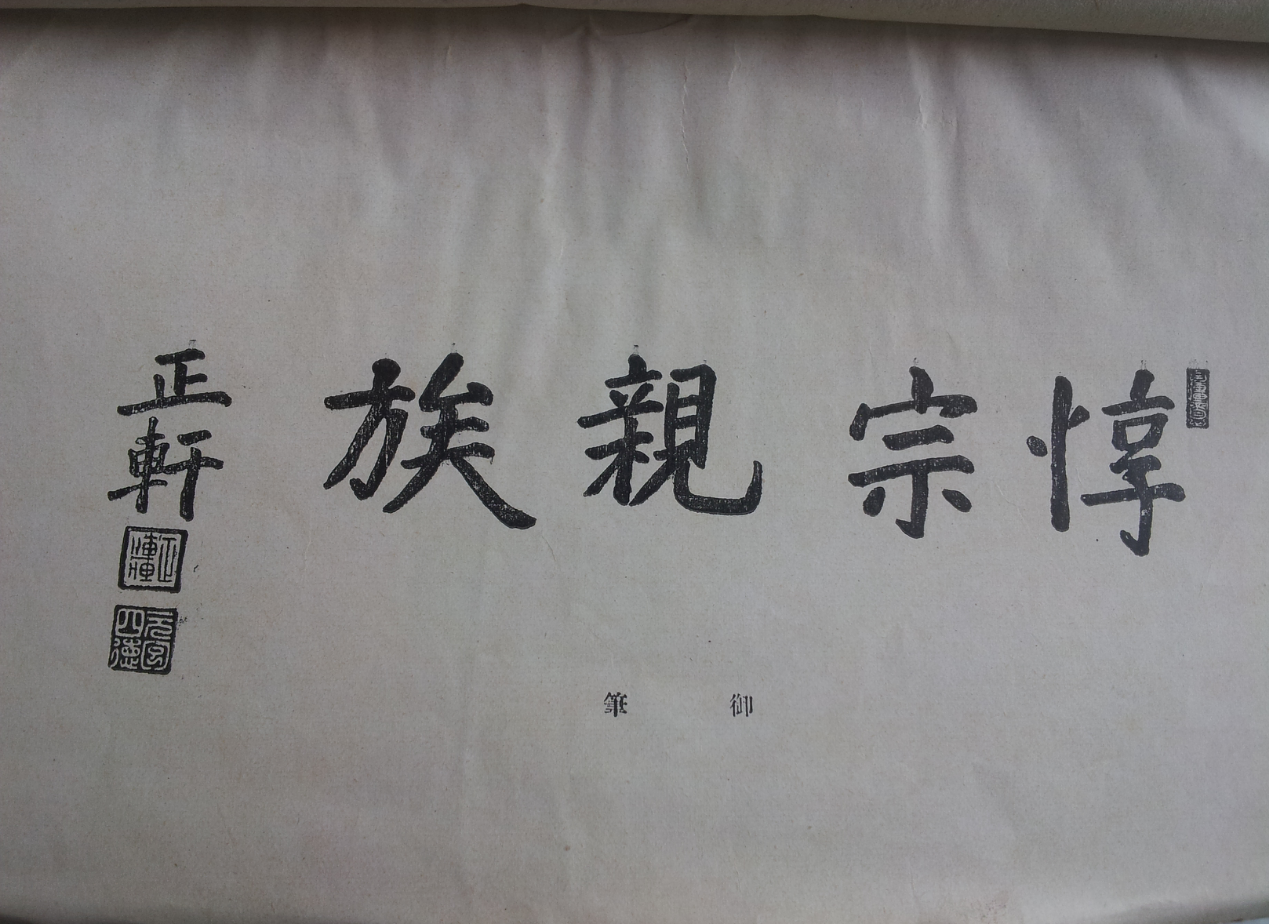 惇宗親族
正軒
御筆